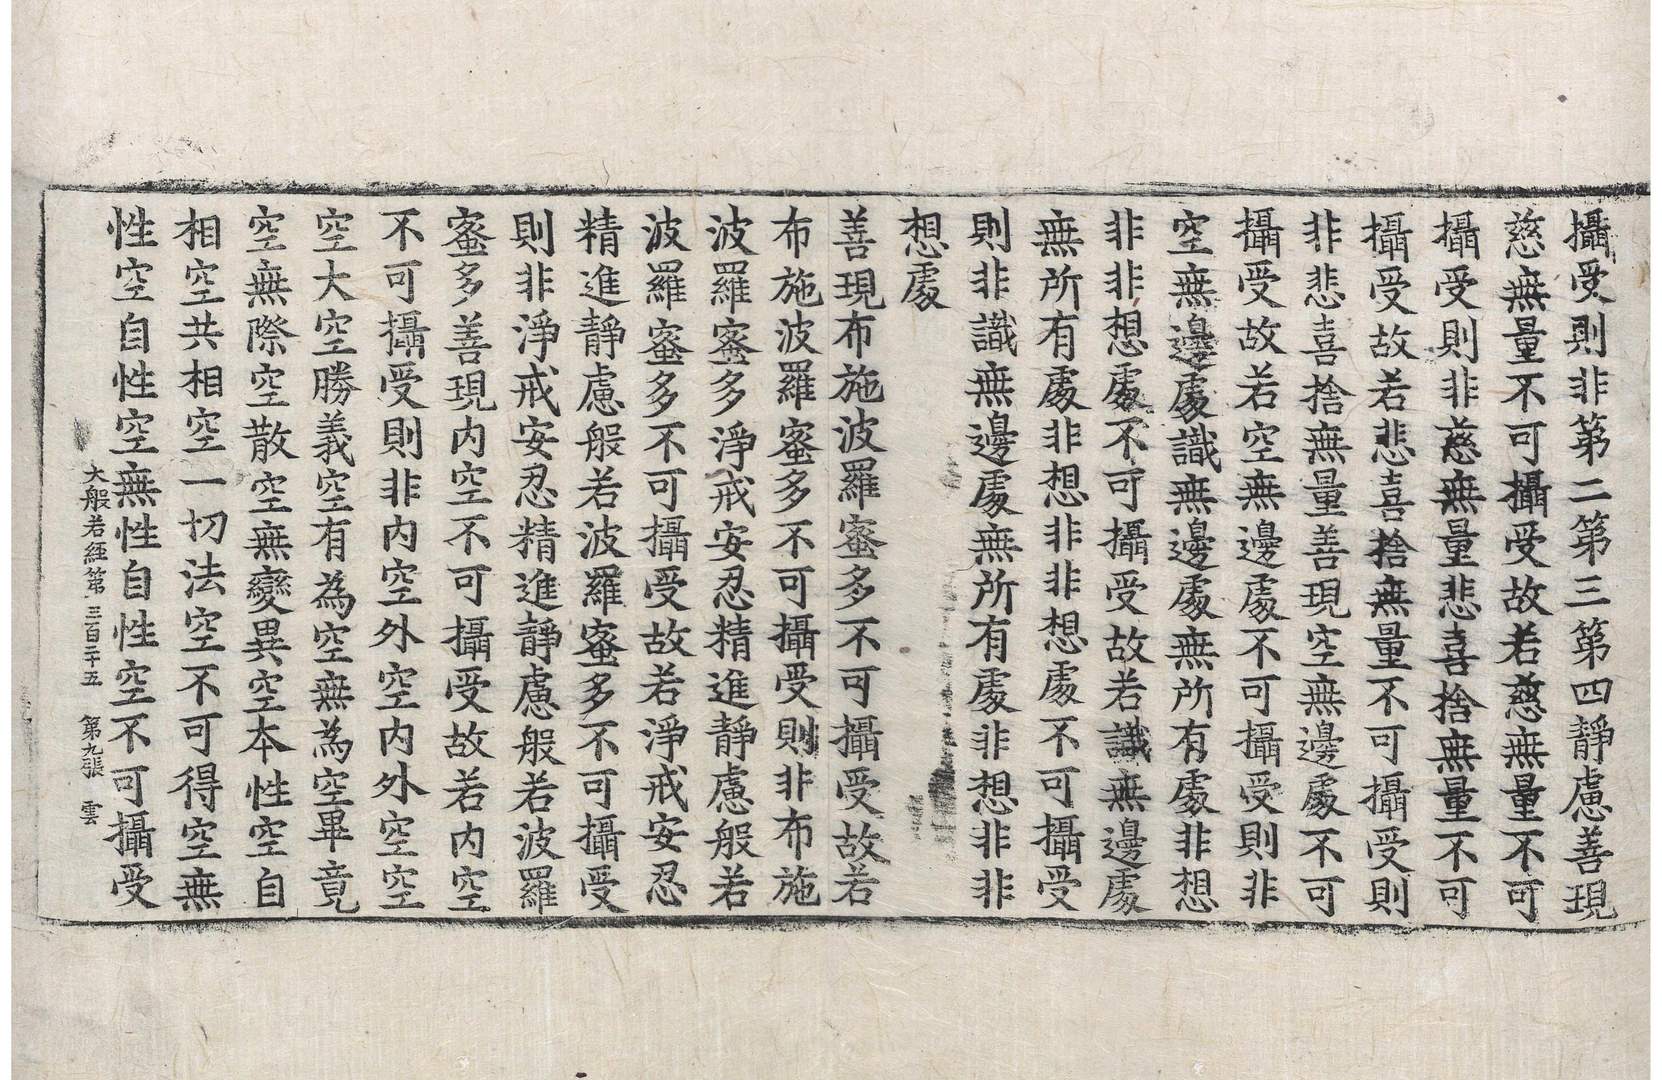 攝受則非第二第三第四靜慮善現
慈無量不可攝受故若慈無量不可
攝受則非慈無量悲喜捨無量不可
攝受故若悲喜捨無量不可攝受則
非悲喜捨無量善現空無邊處不可
攝受故若空無邊處不可攝受則非
空無邊處識無邊處無所有處非想
非非想處不可攝受故若識無邊處
無所有處非想非非想處不可攝受
則非識無邊處無所有處非想非非
想處
善現布施波羅蜜多不可攝受故若
布施波羅蜜多不可攝受則非布施
波羅蜜多淨戒安忍精進靜慮般若
波羅蜜多不可攝受故若淨戒安忍
精進靜慮般若波羅蜜多不可攝受
則非淨戒安忍精進靜慮般若波羅
蜜多善現內空不可攝受故若內空
不可攝受則非內空外空內外空空
空大空勝義空有為空無為空畢竟
空無際空散空無變異空本性空自
相空共相空一切法空不可得空無
性空自性空無性自性空不可攝受
大般若經第三百二十五 第九張 雲